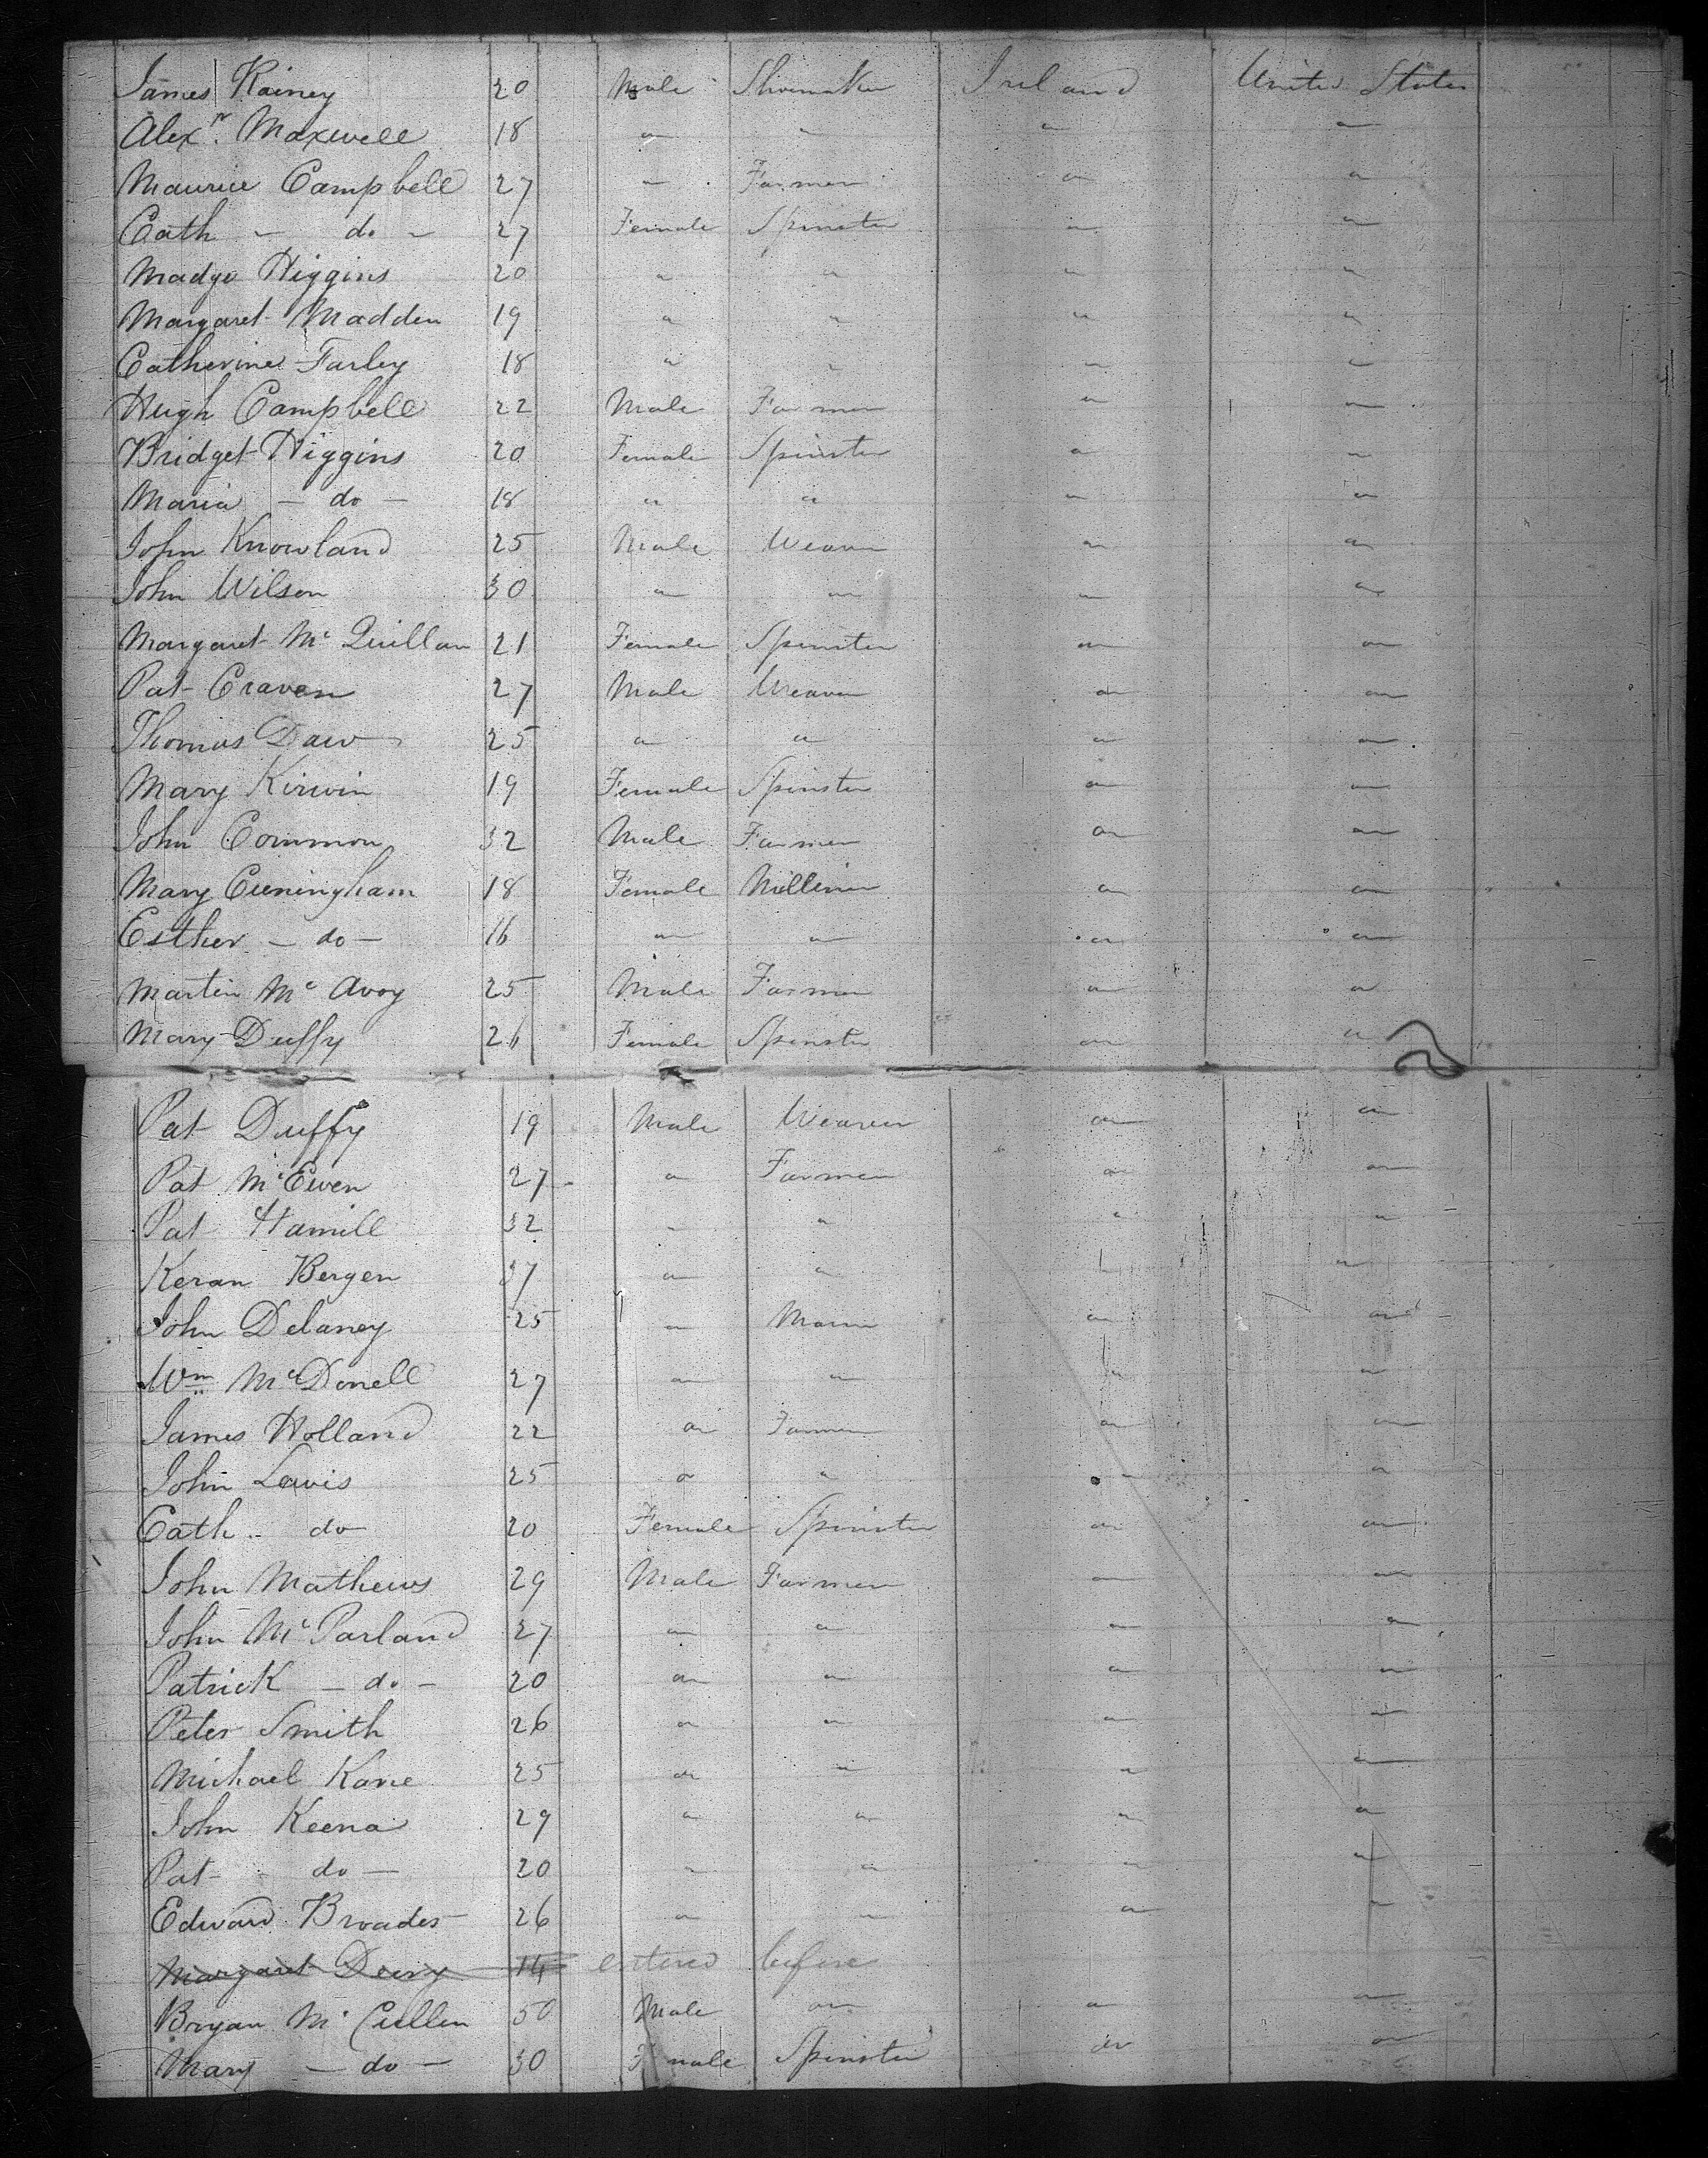 James Rainey 20 Male Shoemaker Ireland United States
Alexr. Maxwell 18 " " " "
Maurice Campbell 27 " Farmer " "
Cath - do - 27 Female Spinster " "
Madge Higgins 20 " " " "
Margaret Madden 19 " " " "
Catherine Farley 18 " " " "
Hugh Campbell 22 Male Farmer " "
Bridget Higgins 20 Female Spinster " "
Maria - do - 18 " " " "
John Knowland 25 Male Weaver " "
John Wilson 30 " " " "
Margaret Mc Quillan 21 Female Spinster " "
Pat Craven 27 Male Weaver " "
Thomas Daw 25 " " " "
Mary Kirwin 19 Female Spinster " "
John Common 32 Male Farmer " "
Mary Cuningham 18 Female Milliner " "
Esther - do - 16 " " " "
Martin Mc Avoy 25 Male Farmer " "
Mary Duffy 26 Female Spinster " "
Pat Duffy 19 Male Weaver " "
Pat McEwen 27 " Farmer " "
Pat Hamill 32 " " " "
Keran Bergen 37 " " " "
John Delaney 25 " Mason " "
Wm McDonell 27 " " " "
James Holland 22 " Farmer " "
John Lewis 25 " " " "
Cath. do 20 Female Spinster " "
John Mathews 29 Male Farmer " "
John Mc Parland 27 " " " "
Patrick - do - 20 " " " "
Peter Smith 26 " " " "
Michael Kane 25 " " " "
John Keena 29 " " " "
Pat - do - 20 " " " "
Edward Broades 26 " " " "
Margaret Deery 14 entered before
Bryan Mc Cullen 50 Male " " "
Mary - do - 30 Female Spinster " "